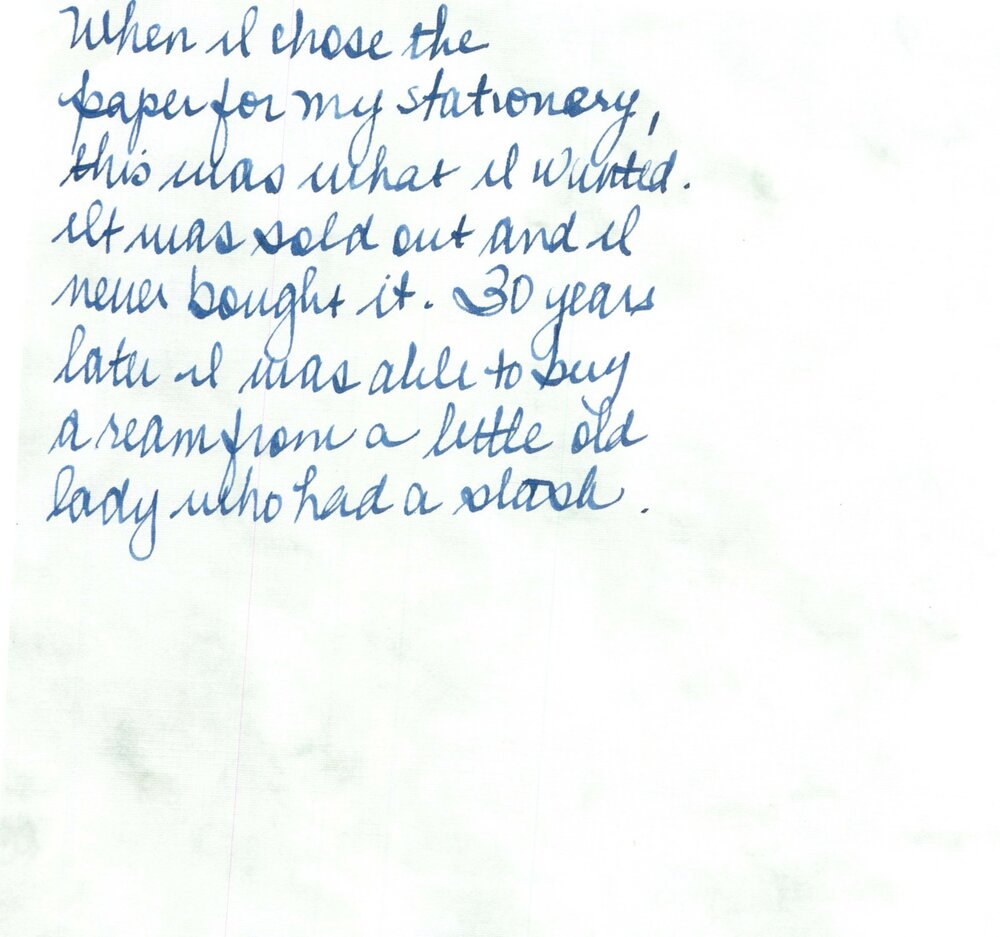 When I chose the
paper for my stationary,
this was what I wanted.
It was sold out and I
never bought it. 30 years
later I was able to buy
a ream from a little old
lady who had a stash.